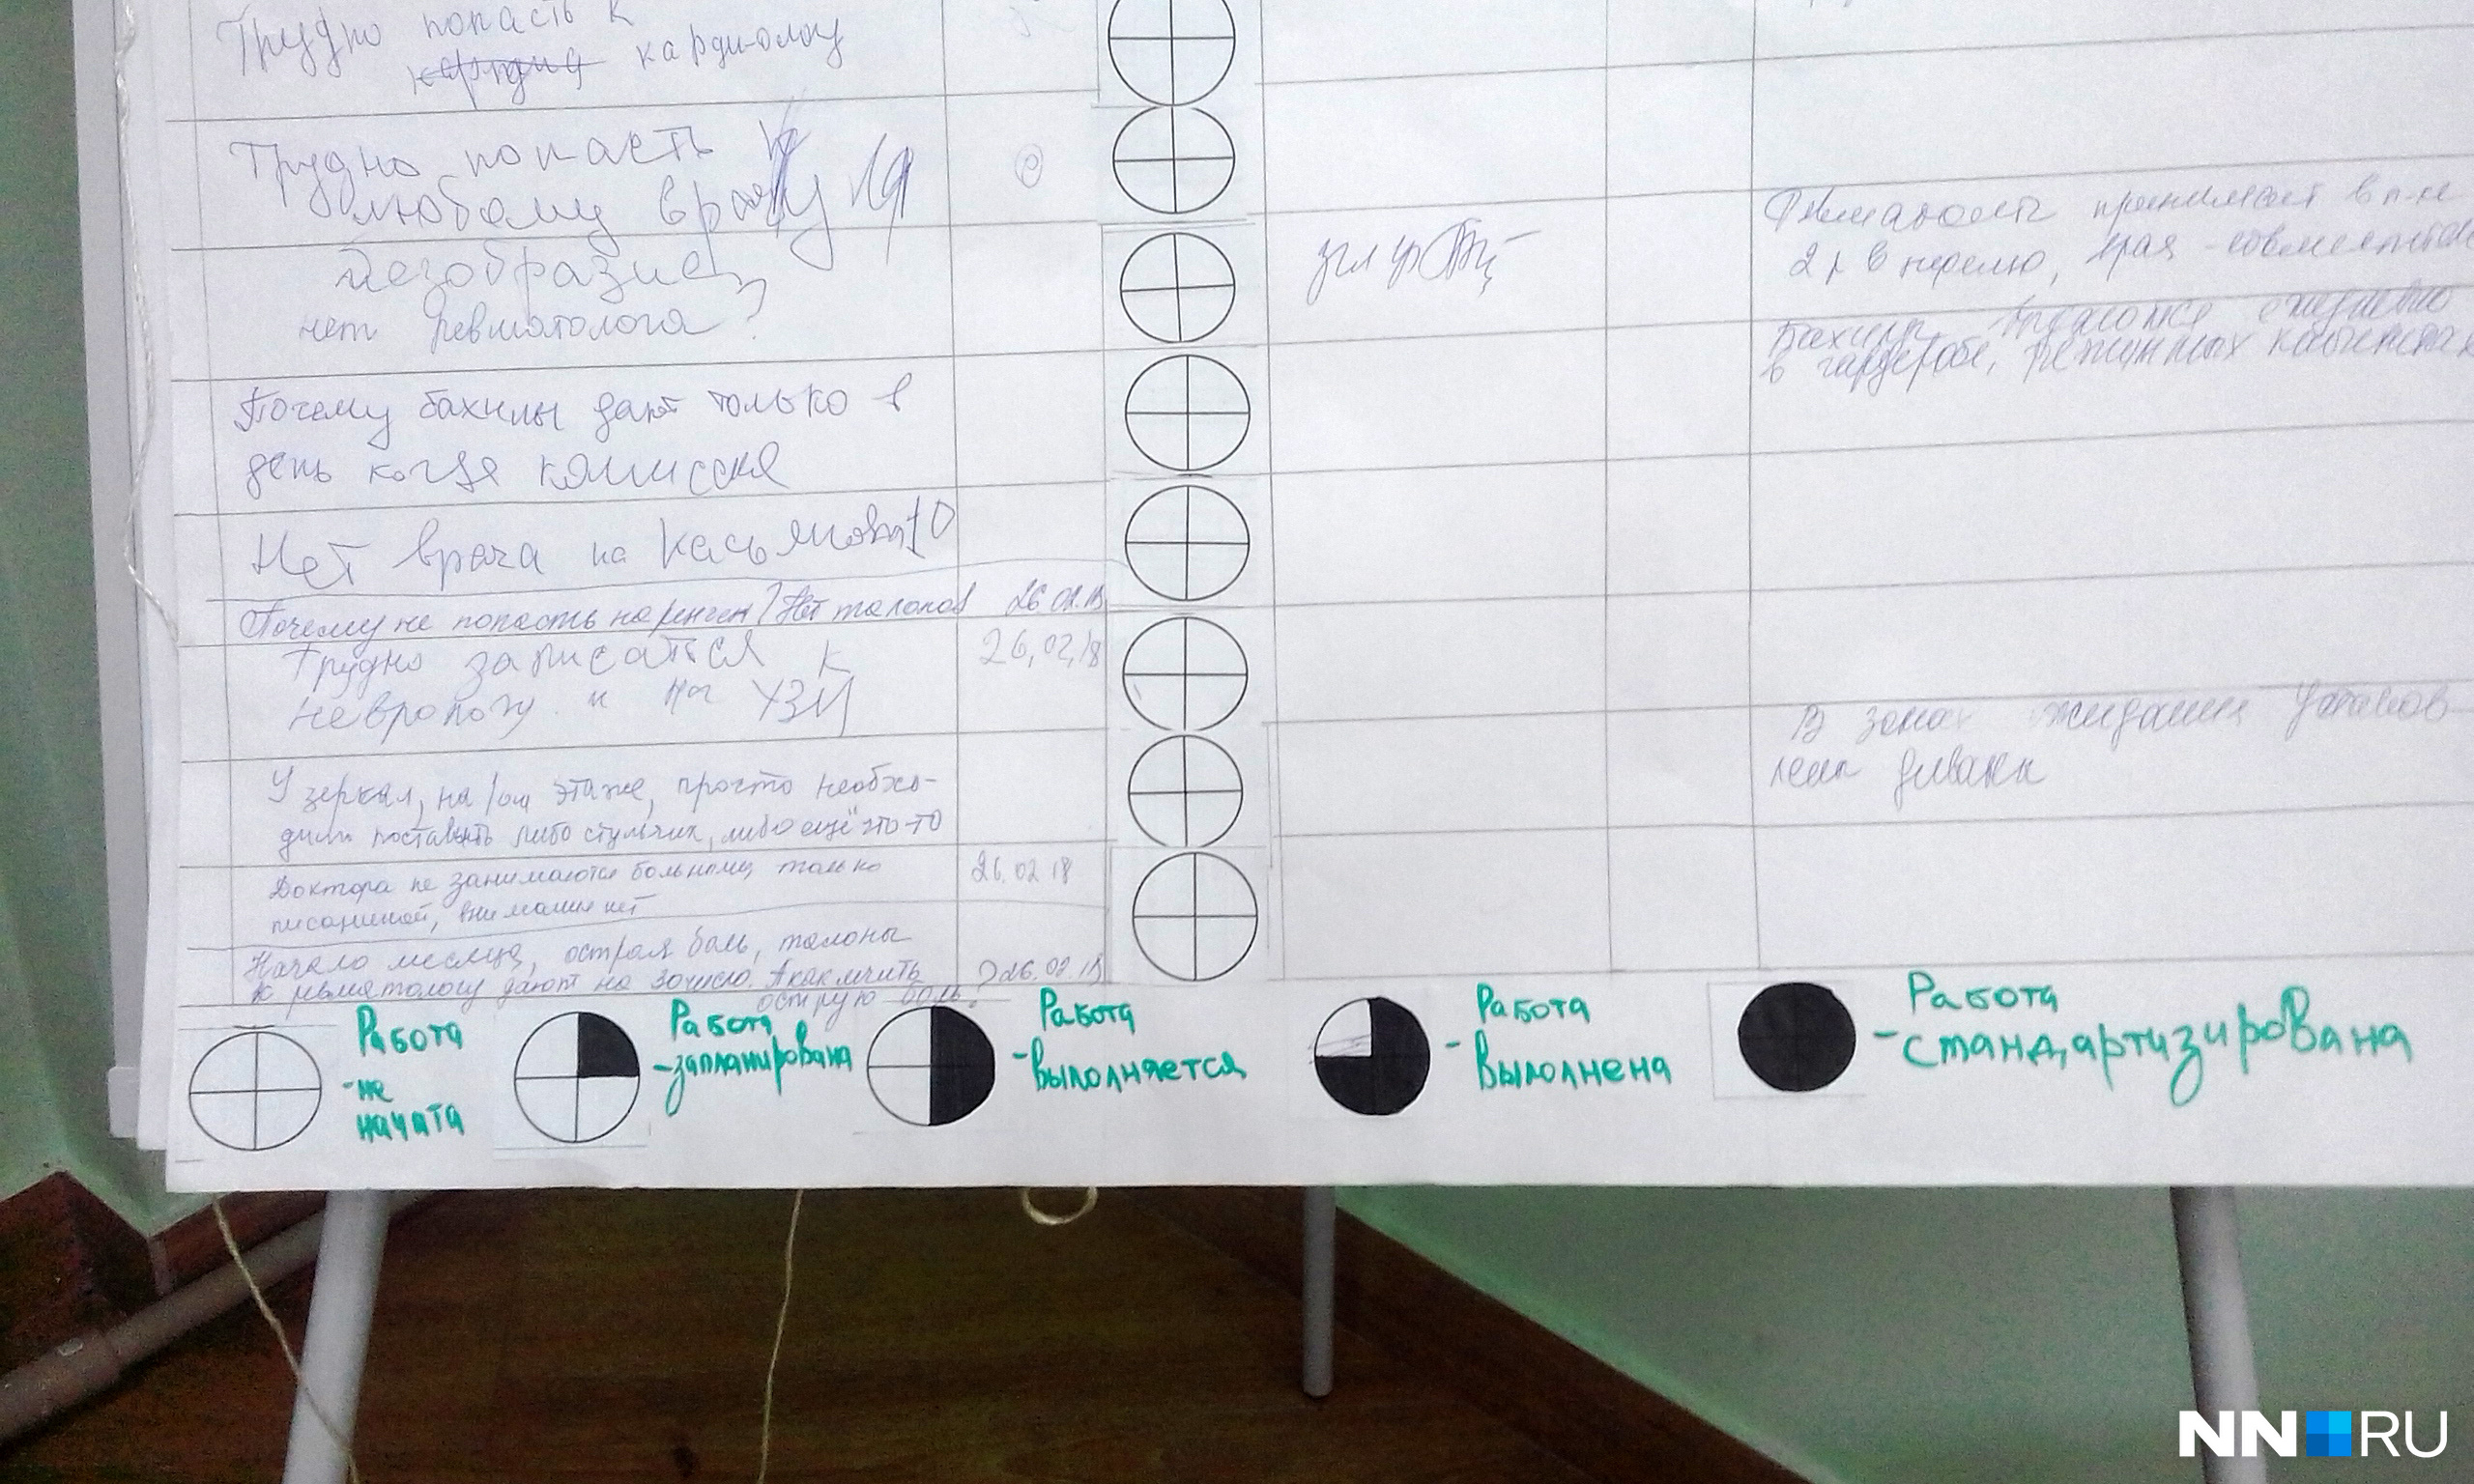 Трудно попасть к
кардиологу
Трудно попасть к
любому врачу
безобразие
нет ревматолога?
Ревматолог принимает в п-ке
2 р в неделю, врач -совместитель
Почему бахилы дают только в
день когда комиссия
Бахилы ежедневно
в гардеробе, кабинетах
Нет врача на Касьянова 10
Почему не попасть на ренген? Нет талонов 26.02.18
Трудно записаться к 26,02,18
неврологу и на УЗИ
У зеркал, на 1ом этаже, просто необхо-
димо поставить либо стульчик, либо ещё что-то
В зонах ожидания установ
лены диваны
Доктора не занимаются больными, только 26.02 18
писаниной, внимания нет
Начало месяца, острая боль, талоны
к ревматологу дают на 30 число. А как лечить 26.02.18
острую боль?
Работа
-не
начата
Работа
-запланирована
Работа
-выполняется
Работа
- выполнена
Работа
- стандартизирована
NN RU